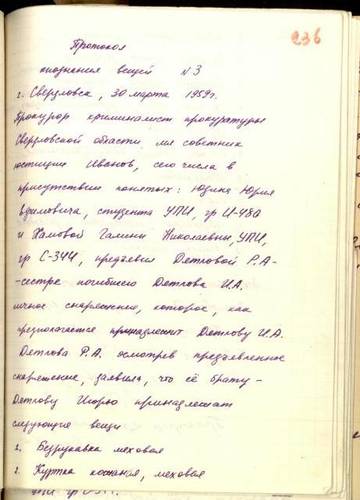 236
Протокол
опознания вещей №3
г. Свердловск, 30 марта 1959г.
Прокурор криминалист прокуратуры
Свердловской области мл советник
юстиции Иванов, сего числа в
присутствии понятых: Юдина Юрия
студента УПИ, гр И-480
и Хамовой Галины Николаевны, УПИ,
гр С-344, предъявил Дятловой Р.А-
-сестре погибшего Дятлова И.А.
личное снаряжение, которое, как
предполагается принадлежит Дятлову И.А.
Дятлова Р.А. осмотрев предъявленное
снаряжение, заявила, что её брату -
Дятлову Игорю принадлежат
следующие вещи
1. Безрукавка меховая
2. Куртка кожаная, меховая